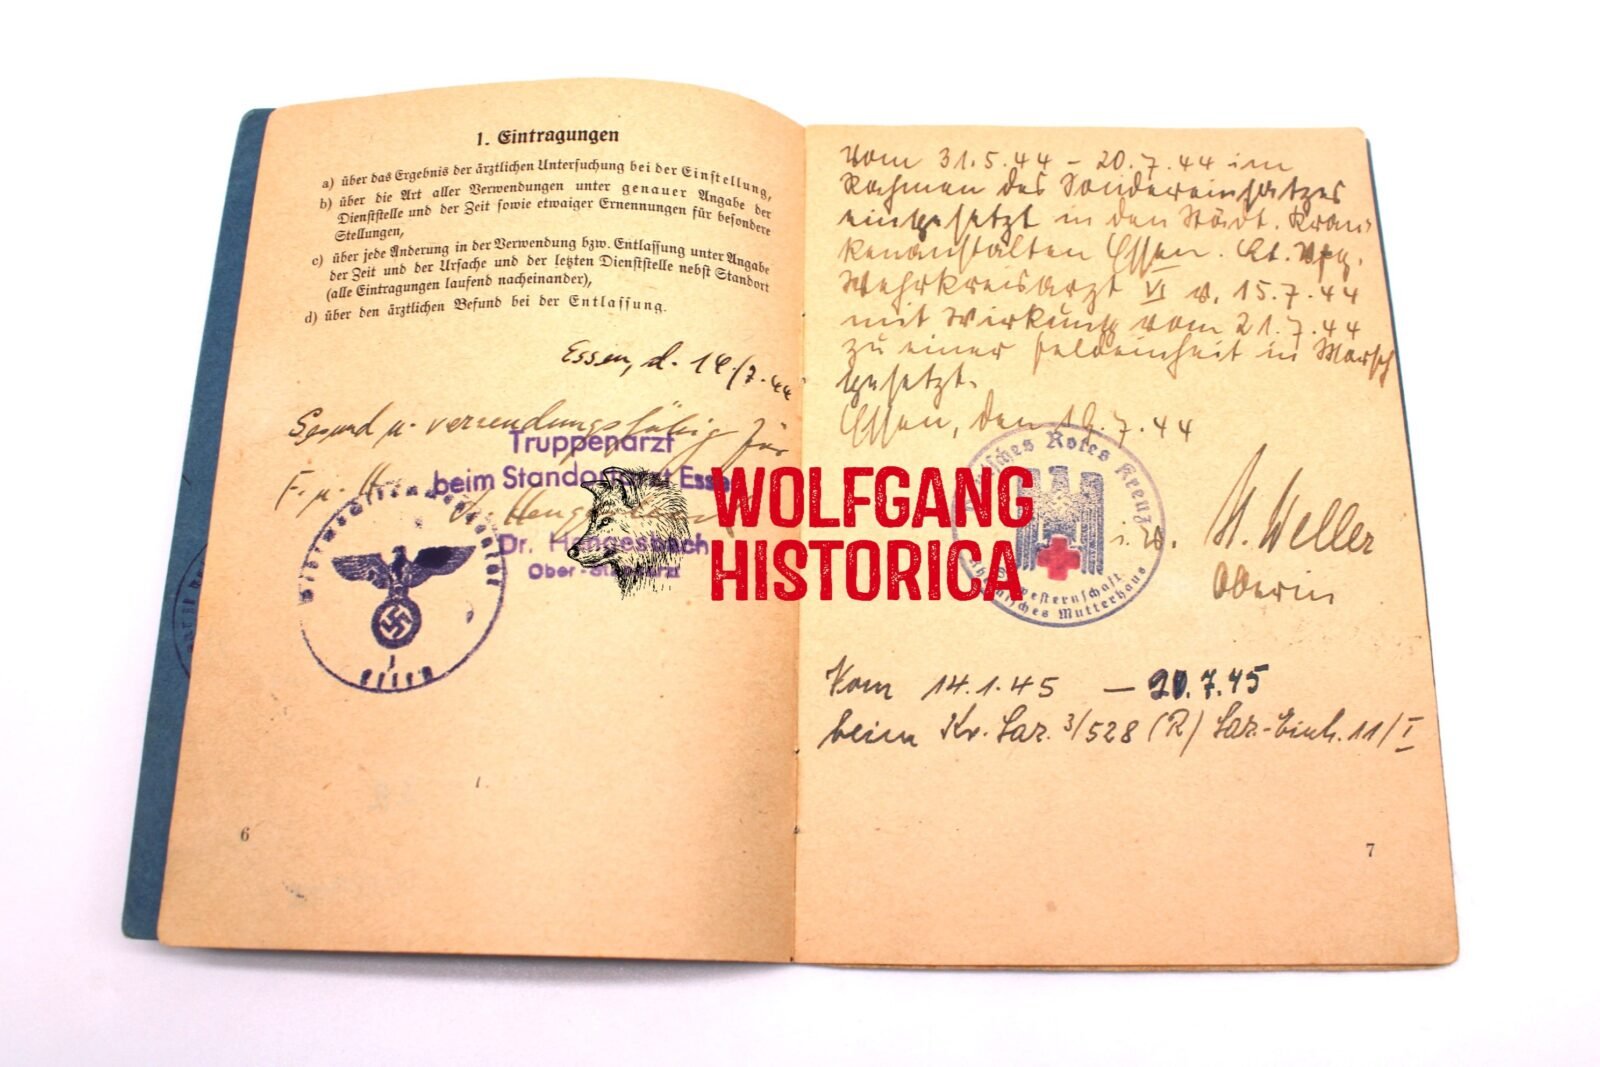 1. Eintragungen
a) über das Ergebnis der ärztlichen Untersuchung bei der Einstellung,
b) über die Art aller Verwendungen unter genauer Angabe der
Dienststelle und der Zeit sowie etwaiger Ernennungen für besondere
Stellungen,
c) über jede Änderung in der Verwendung bzw. Entlassung unter Angabe
der Zeit und der Ursache und der letzten Dienststelle nebst Standort
(alle Eintragungen laufend nacheinander),
d) über den ärztlichen Befund bei der Entlassung.
Essen, d. 14./7.44
Gesund u. verwendungsfähig für
F. u.
Truppenarzt
beim Essen
Dr. Hengesbach
Ober-
Essen
6
Vom 31.5.44 – 20.7.44 im
Rahmen des Sondereinsatzes
eingesetzt in den Städt. Kran-
kenanstalten Essen. Lt. Vfg.
Wehrkreisarzt VI v. 15.7.44
mit Wirkung vom 21.7.44
zu einer Feldeinheit in Marsch
gesetzt.
Essen, den 19.7.44
Deutsches Rotes Kreuz
Schwesternschaft
Mutterhaus
i. V. Weller
Oberin
Vom 14.1.45 – 20.7.45
beim Kr. Laz. 3/528 (R) Laz.-Einh. 11/I
7
WOLFGANG
HISTORICA